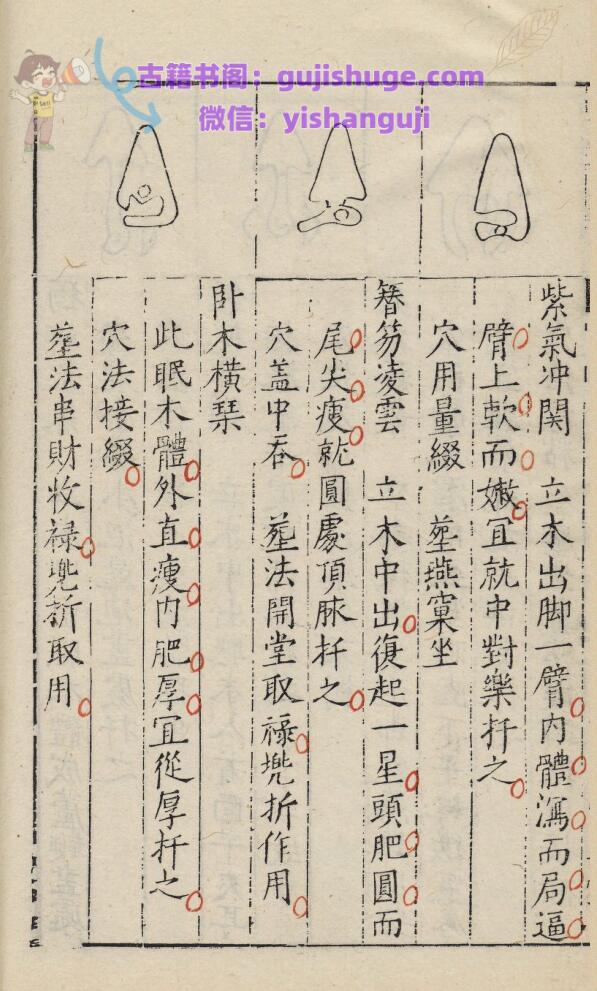 古籍书阁：gujishuge.com
微信：yishanguji
紫氣冲関　立木出脚一臂內體瀉而局逼
臂上軟而嫩冝就中對樂扦之
穴用量綴　塟燕窠坐
簪笏凌雲　立木中出復起一星頭肥圓而
尾尖瘦就圓處頂脉扦之
穴盖中吞　塟法開堂取禄兠折作用
卧木橫琹
此眠木體外直瘦內肥厚冝從厚扦之
穴法接綴
塟法串財牧禄兠折取用